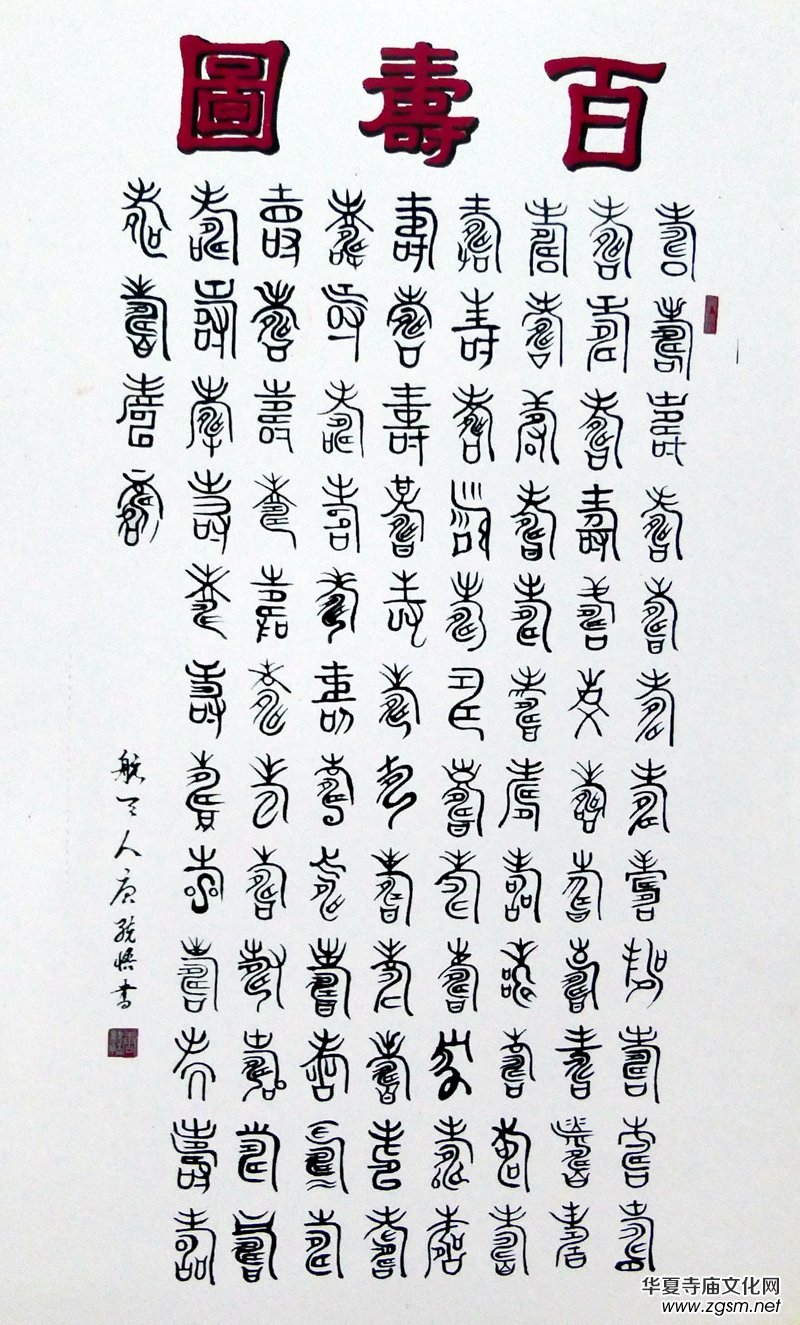 百壽圖
壽壽壽壽壽壽壽壽壽壽壽壽
壽壽壽壽壽壽壽壽壽壽壽壽
壽壽壽壽壽壽壽壽壽壽壽壽
壽壽壽壽壽壽壽壽壽壽壽壽
壽壽壽壽壽壽壽壽壽壽壽壽
壽壽壽壽壽壽壽壽壽壽壽壽
壽壽壽壽壽壽壽壽壽壽壽壽
壽壽壽壽壽壽壽壽壽壽壽壽
壽壽壽壽
航天人唐悟書
华夏寺庙文化网
www.zgsm.net